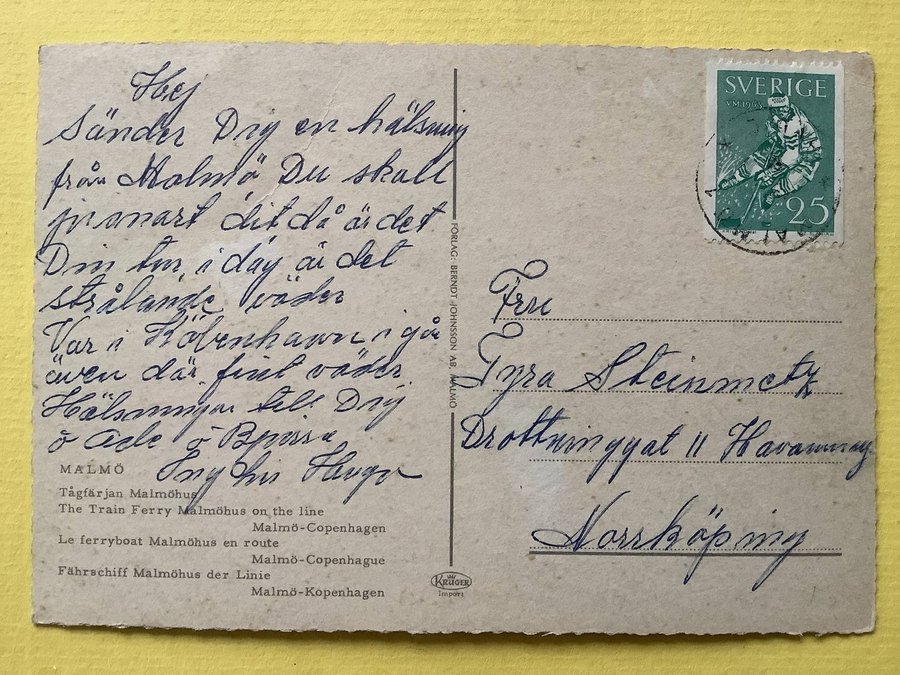 Hej
Sänder Dig en hälsning
från Malmö Du skall
ju snart dit då är det
Din tur, i dag är det
strålande väder
Var i Köbenhavn i går
även där fint väder
Hälsningar till Dig
o o
Hugo
MALMÖ
Tågfärjan Malmöhus
The Train Ferry Malmöhus on the line
Malmö-Copenhagen
Le ferryboat Malmöhus en route
Malmö-Copenhague
Fährschiff Malmöhus der Linie
Malmö-Kopenhagen
FÖRLAG: BERNDT JOHNSSON AB, MALMÖ
KRÜGER
Import
SVERIGE
VM 1963
25
Fru
Tyra Steinmetz
Drottninggat 11
Norrköping